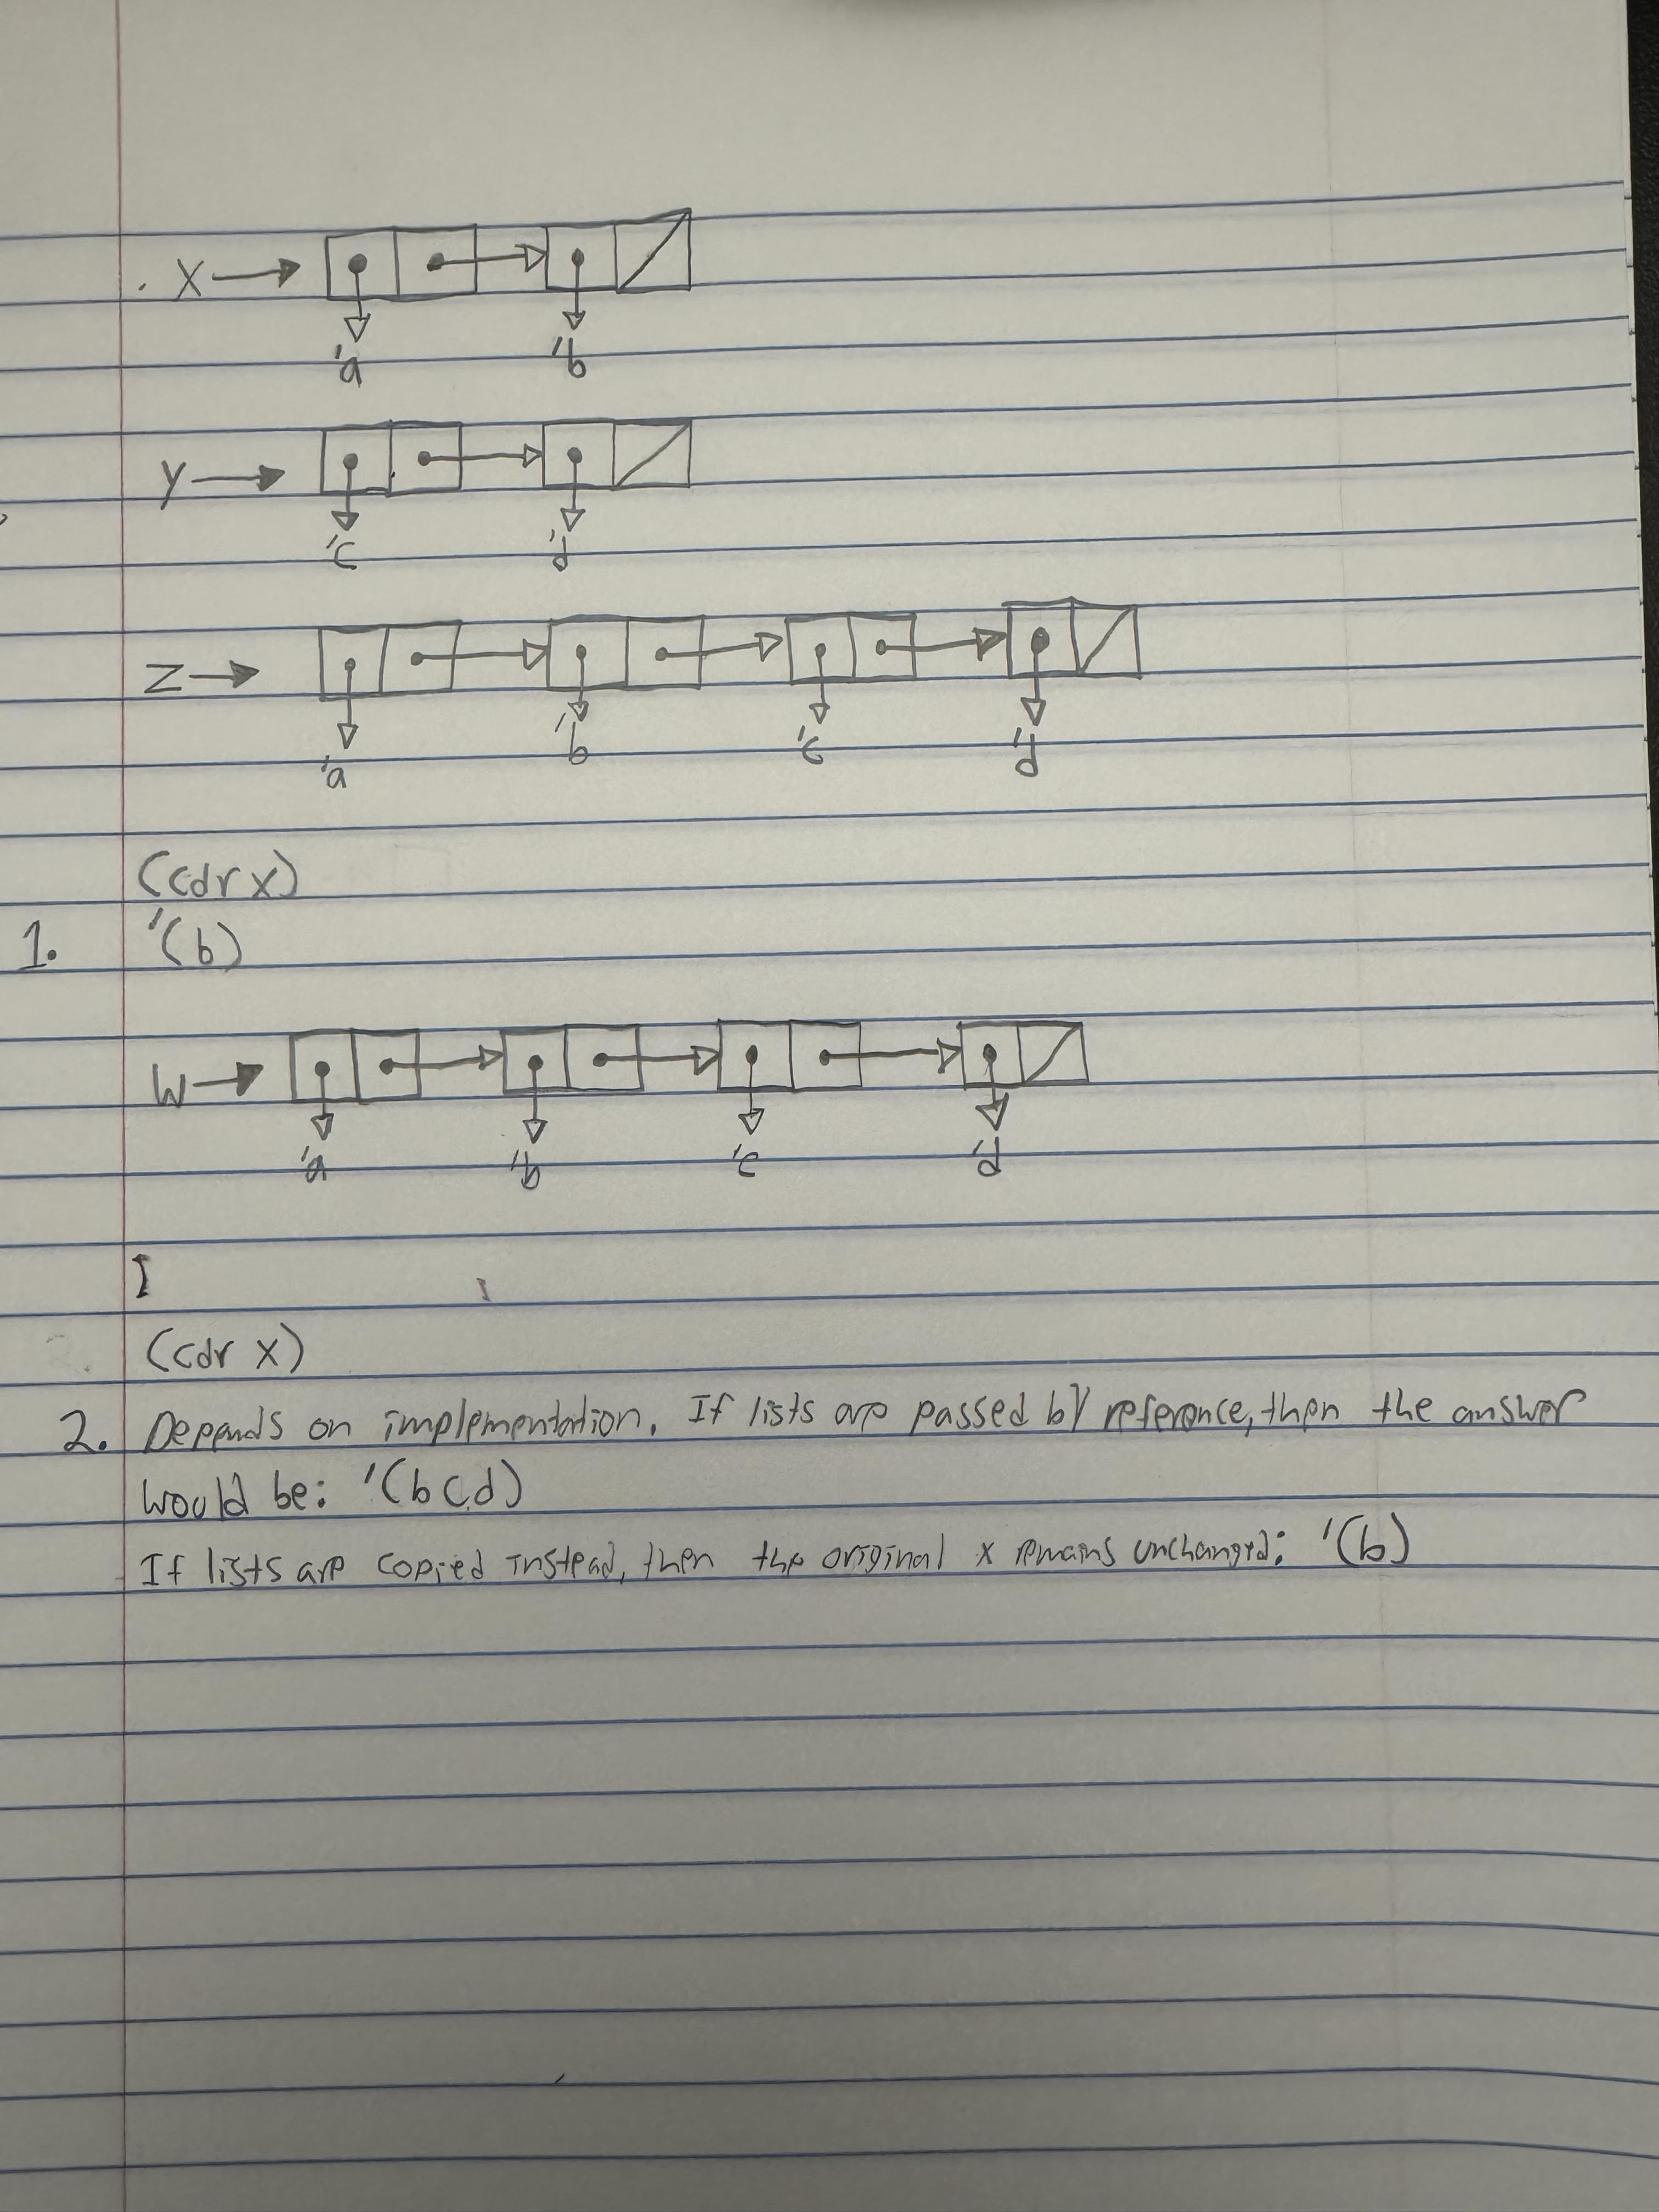 X
'a 'b
y
'c 'd
Z
'a 'b 'c 'd
(cdr x)
1. '(b)
W
'a 'b 'c 'd
(cdr x)
2. Depends on implementation. If lists are passed by reference, then the answer
would be: '(b c d)
If lists are copied instead, then the original x remains unchanged: '(b)